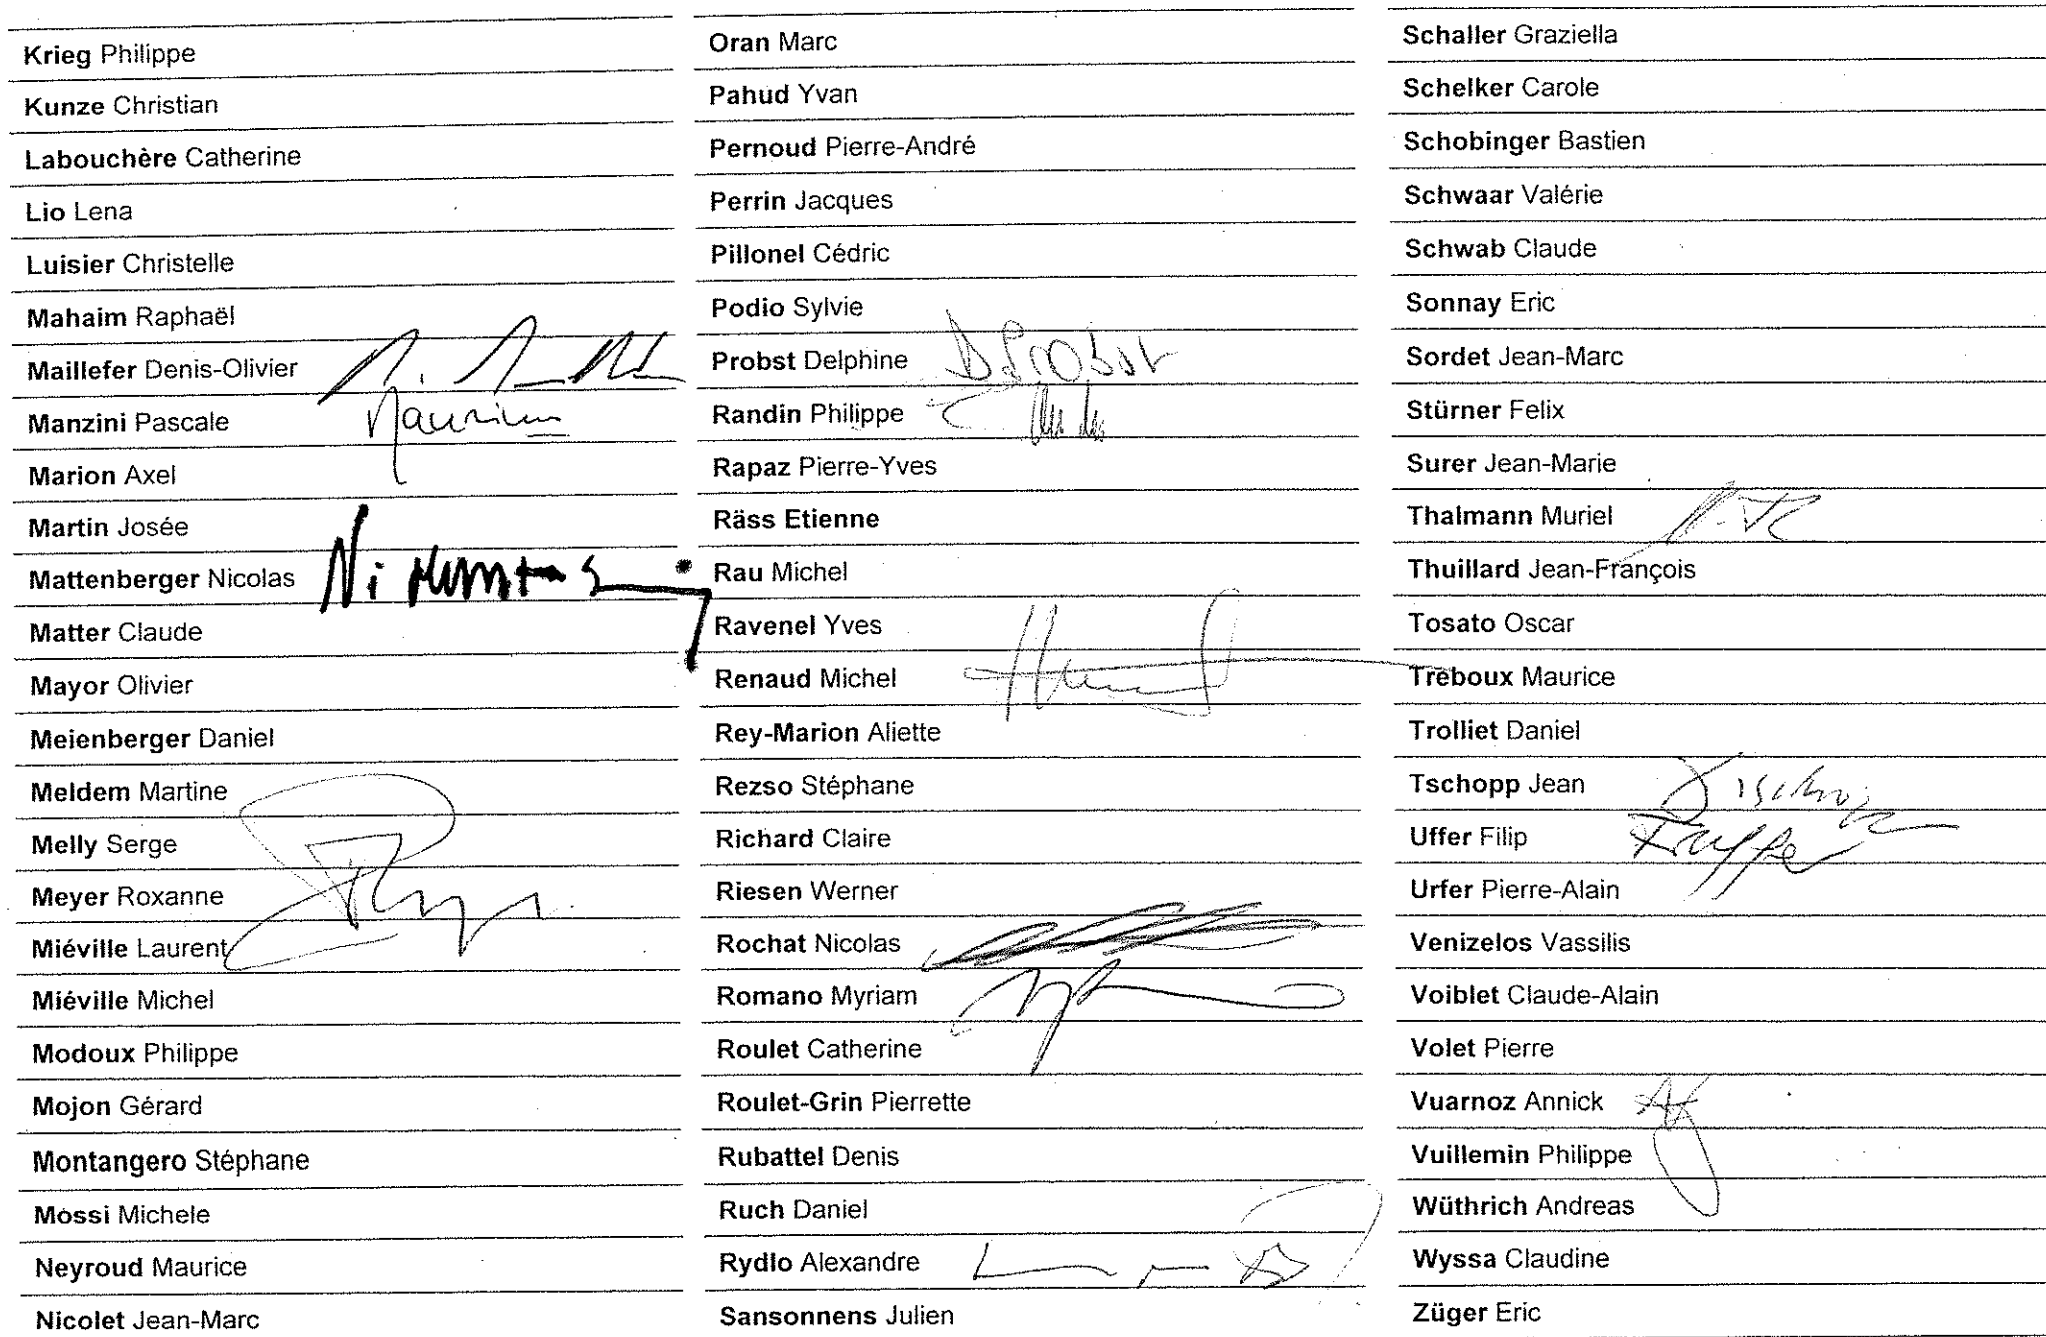 Krieg Philippe
Kunze Christian
Labouchère Catherine
Lio Lena
Luisier Christelle
Mahaim Raphaël
Maillefer Denis-Olivier
Manzini Pascale
Marion Axel
Martin Josée
Mattenberger Nicolas
Matter Claude
Mayor Olivier
Meienberger Daniel
Meldem Martine
Melly Serge
Meyer Roxanne
Miéville Laurent
Miéville Michel
Modoux Philippe
Mojon Gérard
Montangero Stéphane
Mossi Michele
Neyroud Maurice
Nicolet Jean-Marc
Oran Marc
Pahud Yvan
Pernoud Pierre-André
Perrin Jacques
Pillonel Cédric
Podio Sylvie
Probst Delphine DProbst
Randin Philippe
Rapaz Pierre-Yves
Räss Etienne
Rau Michel
Ravenel Yves
Renaud Michel
Rey-Marion Aliette
Rezso Stéphane
Richard Claire
Riesen Werner
Rochat Nicolas
Romano Myriam
Roulet Catherine
Roulet-Grin Pierrette
Rubattel Denis
Ruch Daniel
Rydlo Alexandre
Sansonnens Julien
Schaller Graziella
Schelker Carole
Schobinger Bastien
Schwaar Valérie
Schwab Claude
Sonnay Eric
Sordet Jean-Marc
Stürner Felix
Surer Jean-Marie
Thalmann Muriel
Thuillard Jean-François
Tosato Oscar
Tréboux Maurice
Trolliet Daniel
Tschopp Jean
Uffer Filip
Urfer Pierre-Alain
Venizelos Vassilis
Voiblet Claude-Alain
Volet Pierre
Vuarnoz Annick
Vuillemin Philippe
Wüthrich Andreas
Wyssa Claudine
Züger Eric